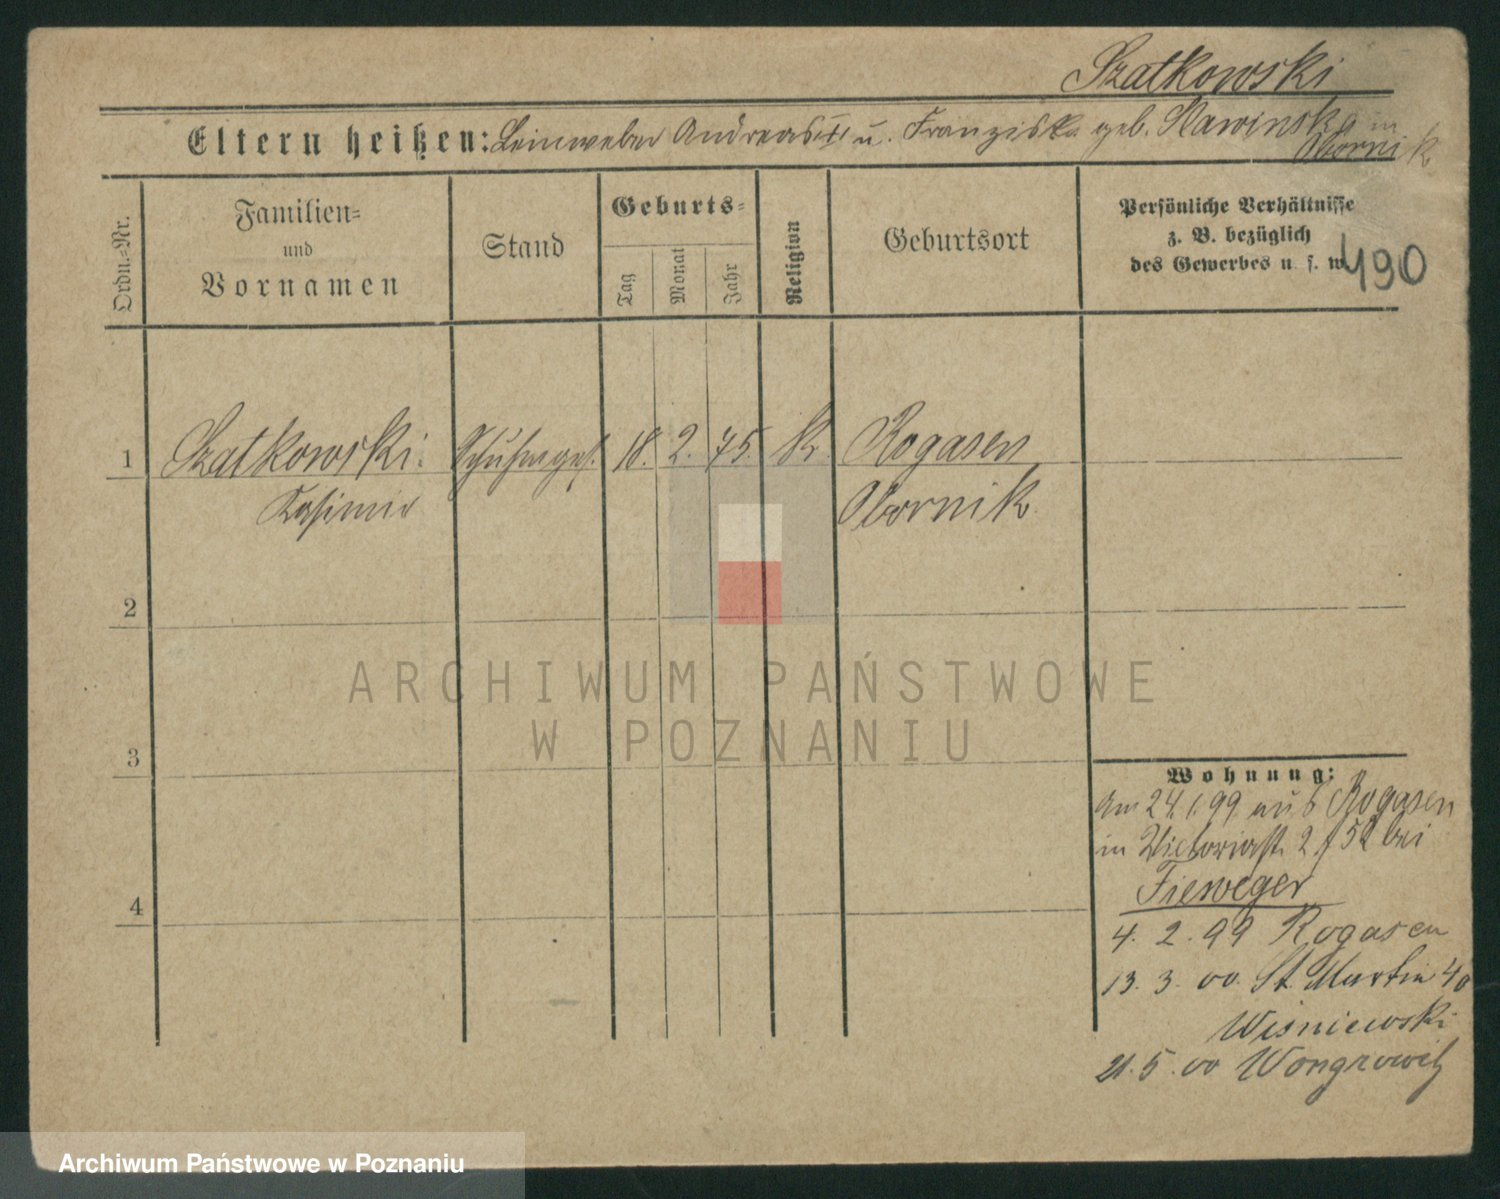 Szatkowski
Eltern heißen: Leinweber Andreas u. Franziska geb. Slawinska in
Obornik
Ordn.-Nr.
Familien-
und
Vornamen
Stand
Geburts-
Tag
Monat
Jahr
Religion
Geburtsort
Persönliche Verhältnisse
z. B. bezüglich
des Gewerbes u. s. w.
490
1 Szatkowski. Schuhmges. 18. 2. 75. K. Rogasen
Kasimir Obornik
2
3
4
ARCHIWUM PAŃSTWOWE
W POZNANIU
Wohnung:
Am 24.1.99 aus Rogasen
in Victoriastr. 2 bei
Fieweger
4. 2. 99 Rogasen
13. 3. 00. St. Martin 40
Wisniewski
21. 5. 00 Wongrowitz
Archiwum Państwowe w Poznaniu